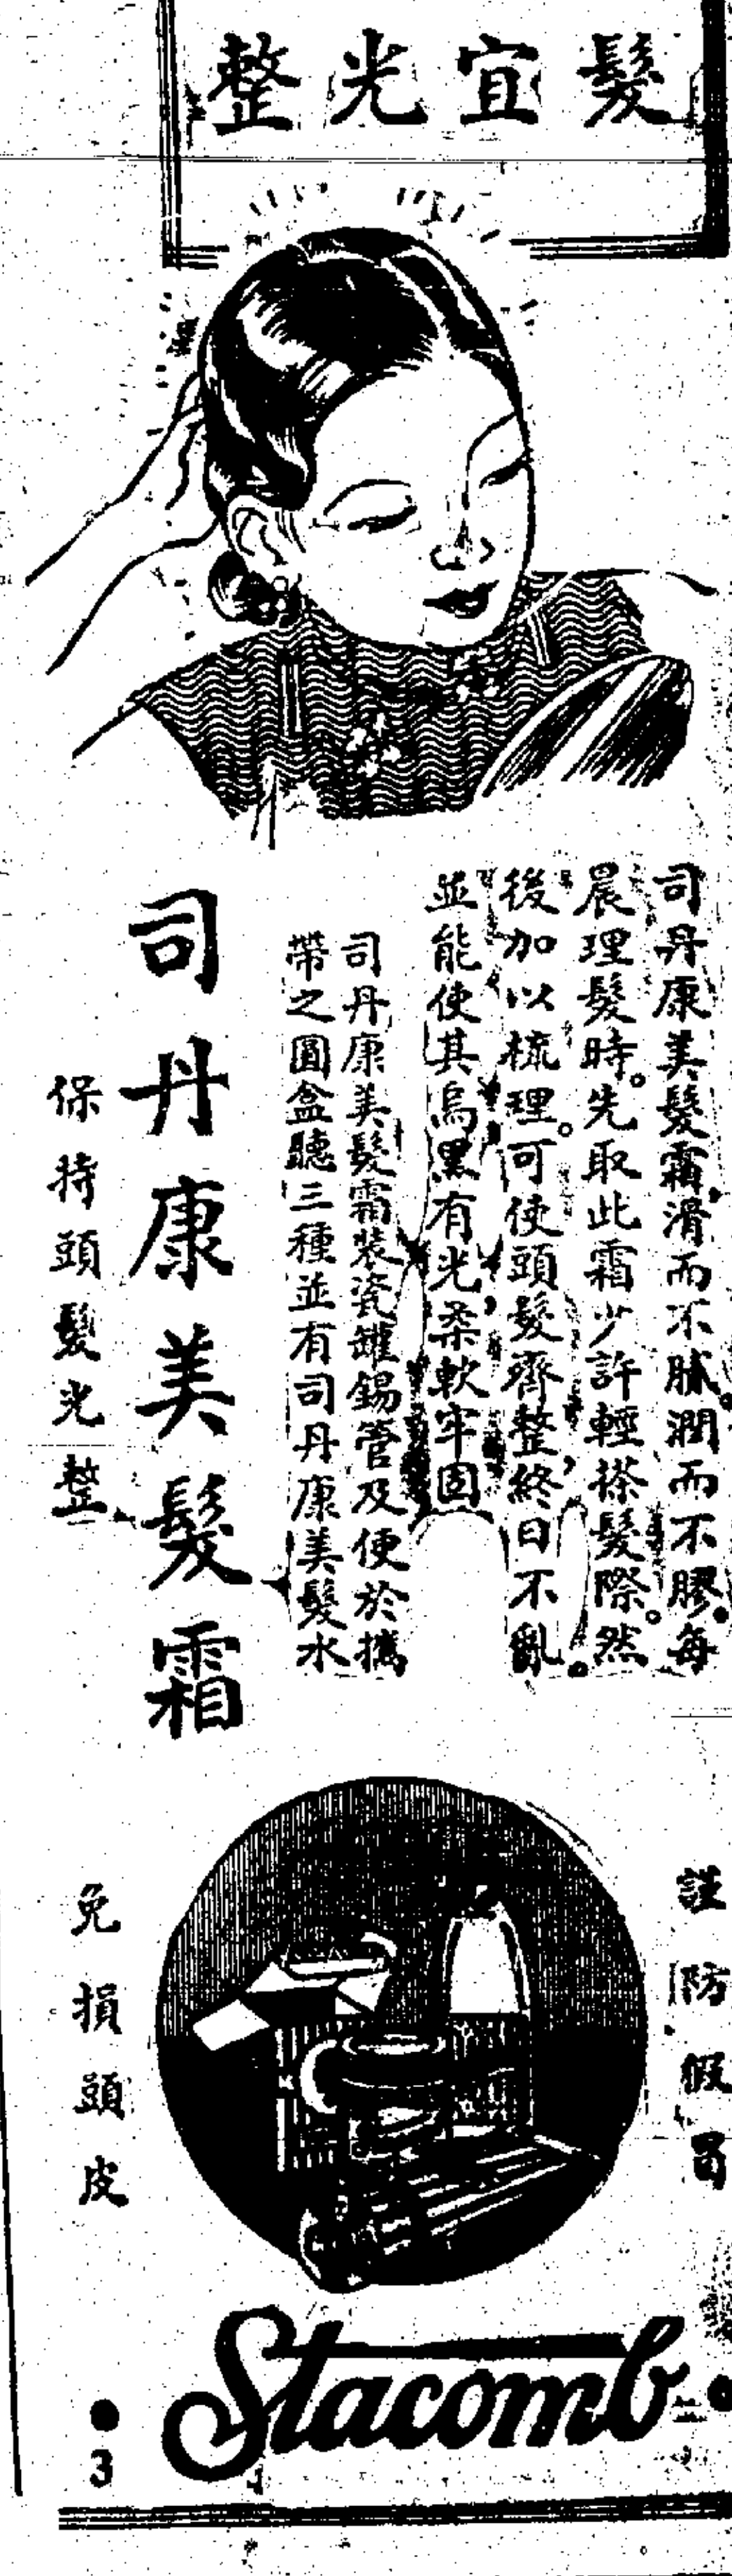 髮宜光整
司丹康美髮霜，滑而不膩。潤而不膠。每
晨理髮時。先取此霜少許輕搽髮際。然
後加以梳理。可使頭髮齊整，終日不亂。
並能使其烏黑有光，柔軟牢固
司丹康美髮霜裝瓷罐錫管及便於攜
帶之圓盒聽三種並有司丹康美髮水
司丹康美髮霜
保持頭髮光整
謹防假冒
免損頭皮
Stacomb
3